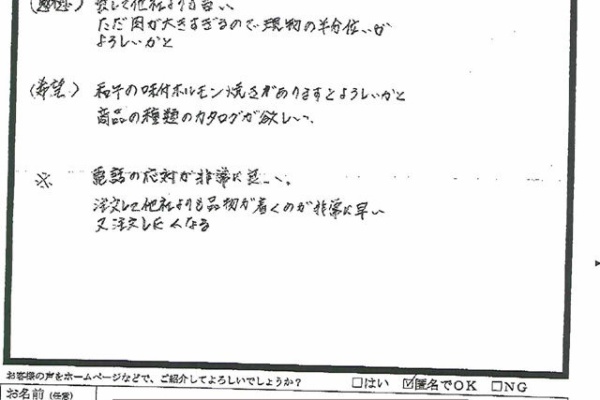 して他社よりも旨い
ただ肉が大きすぎるので現物の半分位いが
よろしいかと
(希望) 若干の味付ホルモン焼きがありますとよろしいかと
商品の種類のカタログが欲しい、
※ 電話の応対が非常に良い。
注文して他社よりも品物が着くのが非常に早い
又注文したくなる
お客様の声をホームページなどで、ご紹介してよろしいでしょうか? □はい ☑匿名でOK □NG
お名前 (任意)